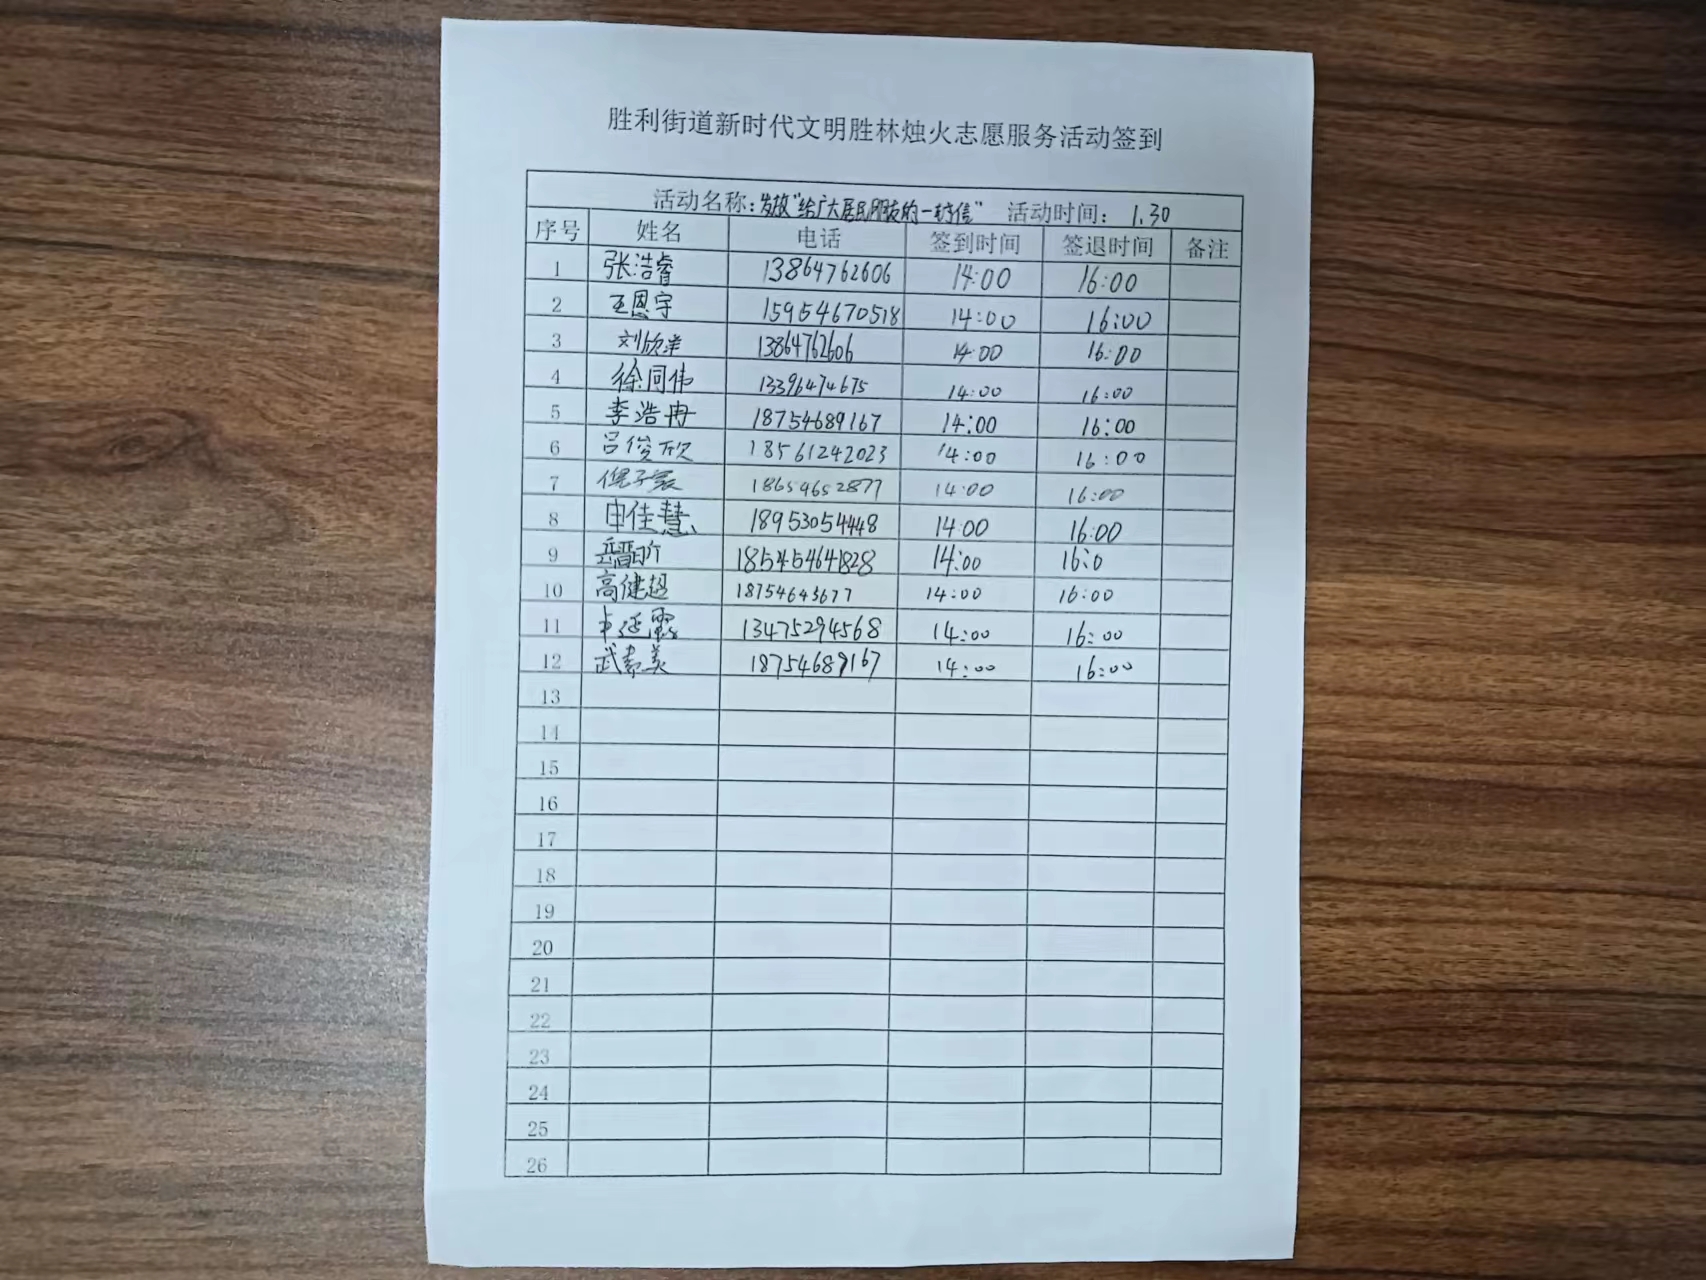 胜利街道新时代文明胜林烛火志愿服务活动签到
活动名称：发放"给广大居民朋友的一封信" 活动时间： 1.30
序号 姓名 电话 签到时间 签退时间 备注
1 张浩睿 13864762606 14:00 16:00
2 王恩宇 15954670518 14:00 16:00
3 刘欣洋 13864762606 14:00 16:00
4 徐同伟 13396474675 14:00 16:00
5 李浩冉 18754689167 14:00 16:00
6 吕俊欣 18561242023 14:00 16:00
7 18659652877 14:00 16:00
8 申佳慧 18953054448 14:00 16:00
9 岳晋昕 18545464828 14:00 16:0
10 高健超 18754643677 14:00 16:00
11 13475294568 14:00 16:00
12 武素美 18754689167 14:00 16:00
13
14
15
16
17
18
19
20
21
22
23
24
25
26